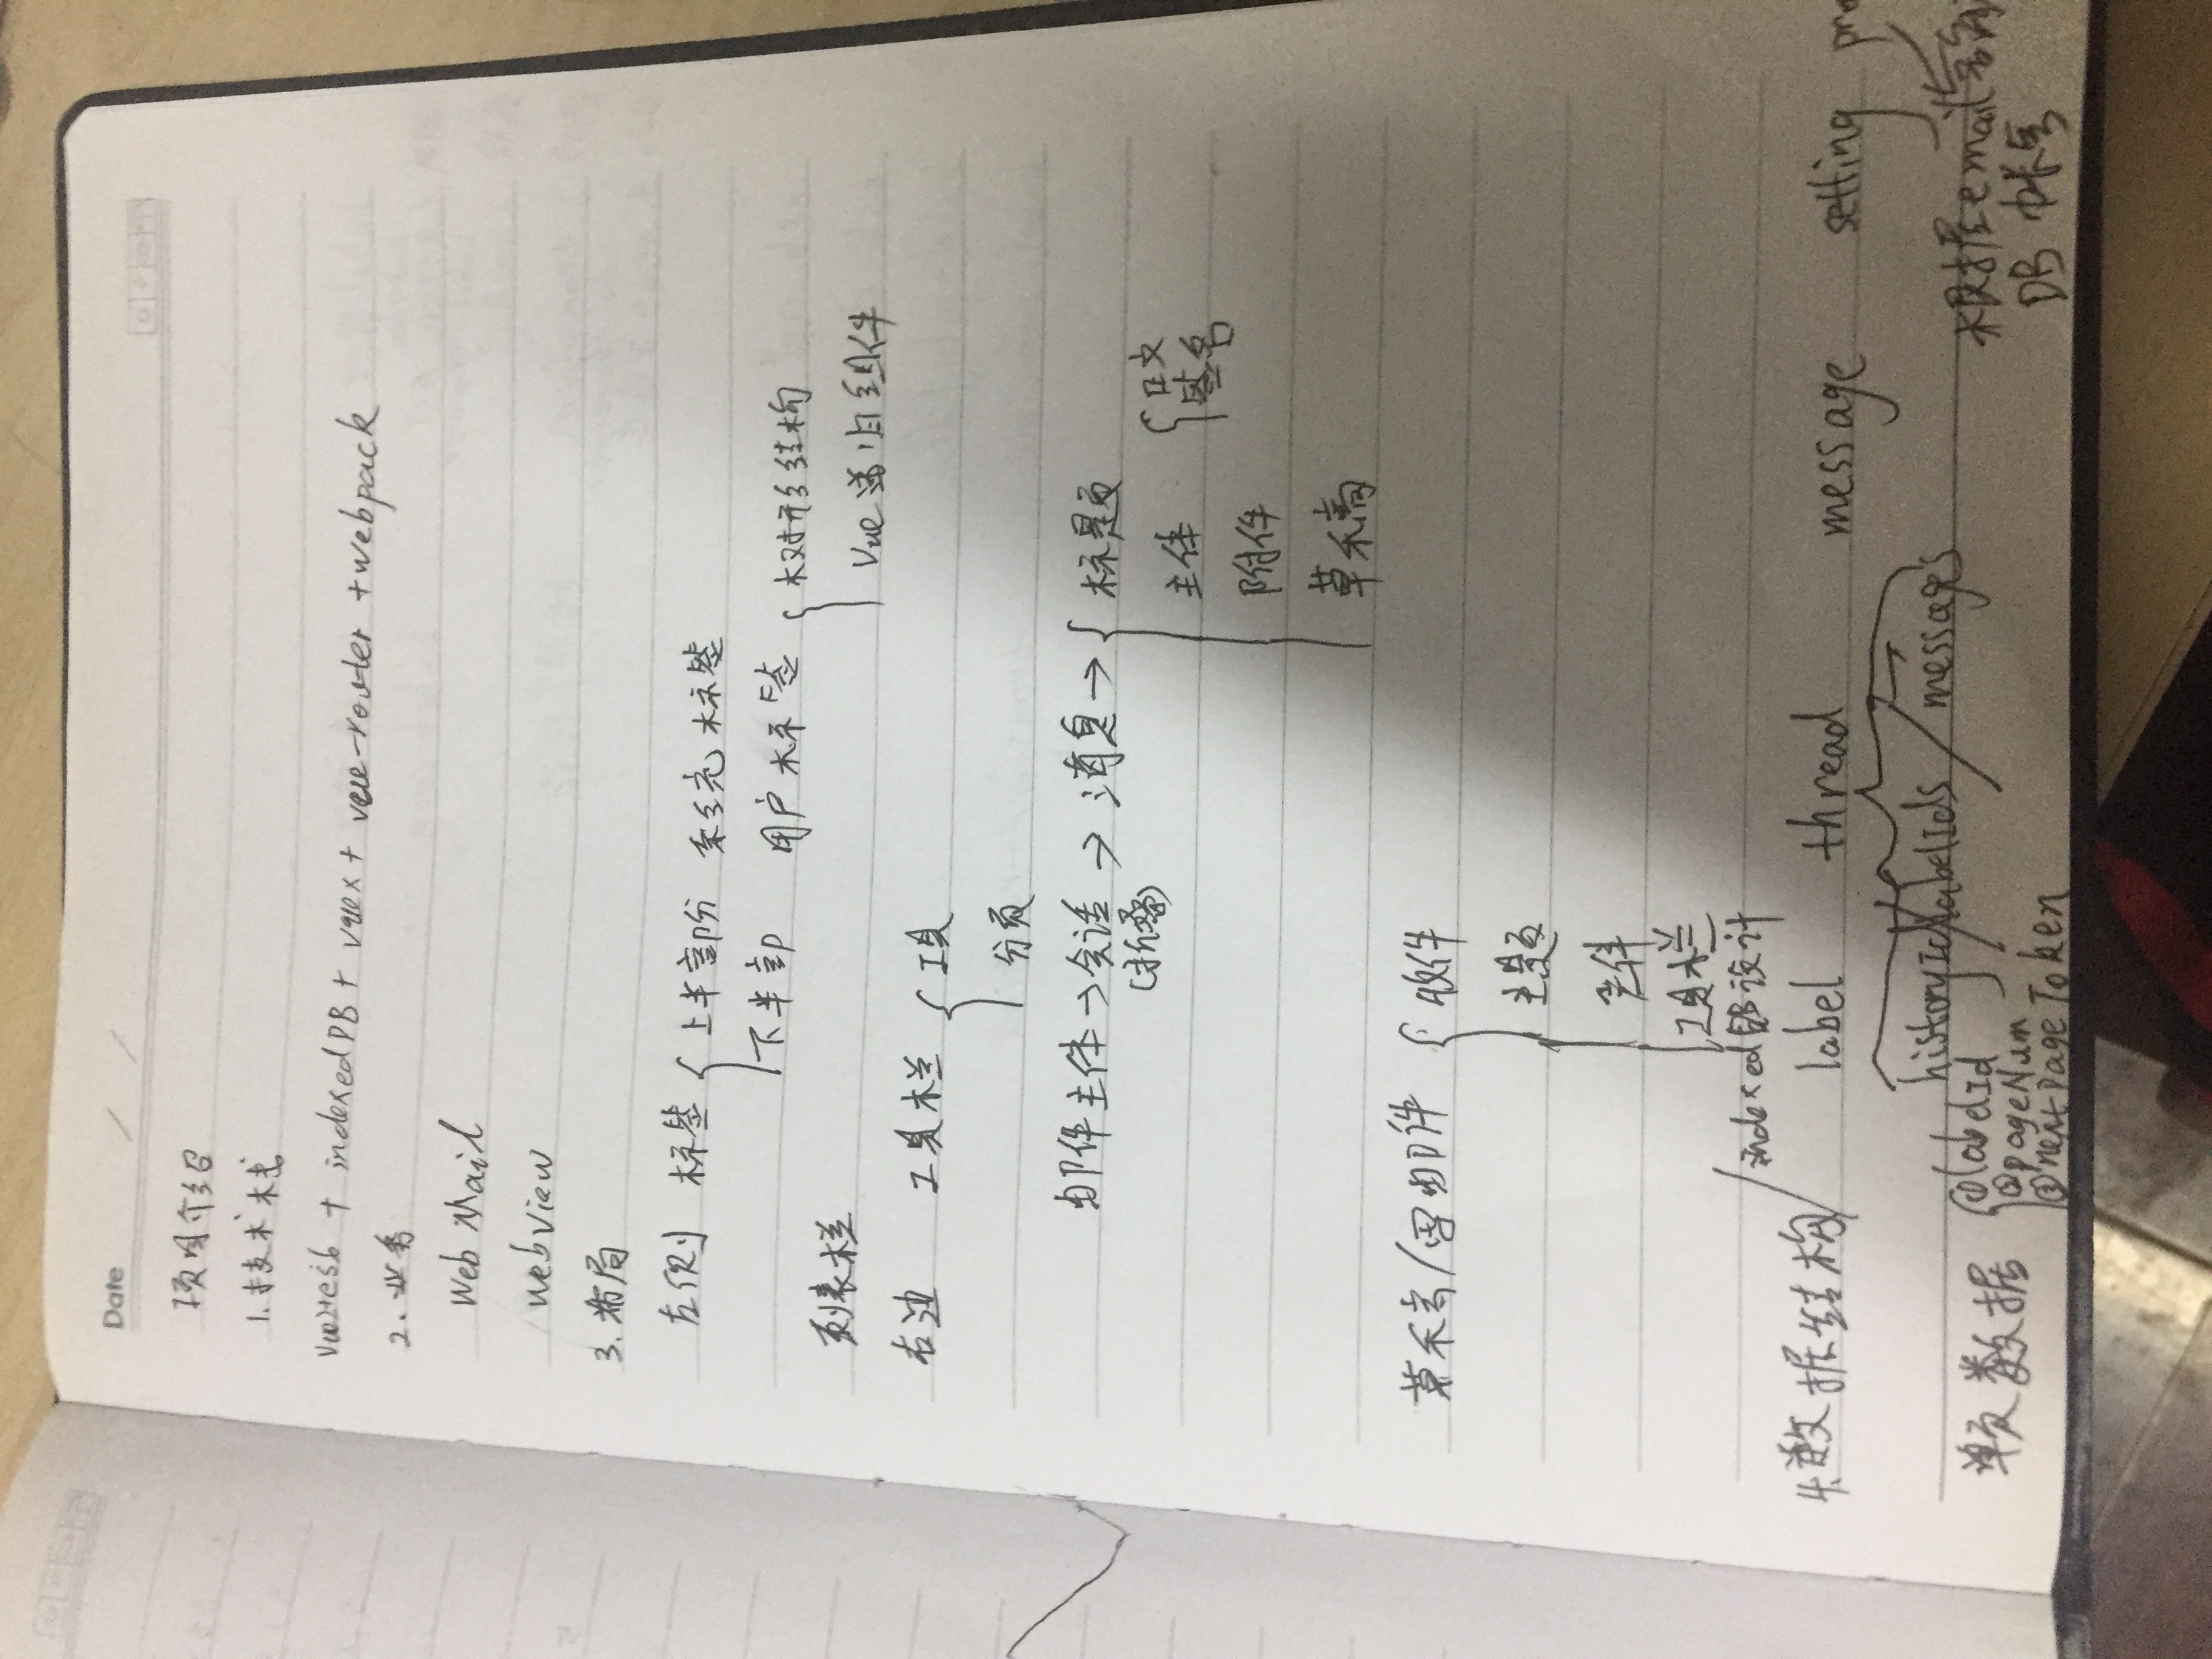 Date / /
项目介绍
1. 技术栈
vue2+es6 + indexedDB + vuex + vue-router + webpack
2. 业务
Web Mail
webview
3. 布局
左侧 标签 { 上半部份 系统标签
下半部 用户标签 { 树形结构
Vue 递归组件
列表栏
右边 工具栏 { 工具
分页
邮件主体 → 会话 → 消息 → { 标题
(折叠)
主体 { 正文
签名
附件
草稿
草稿/写邮件 { 收件
主题
主体
工具栏
indexedDB设计
4. 数据结构 / label thread message setting
historyId / labelIds / messages
单页数据 { ① labelId
② pageNum
③ nextPageToken
根据email
DB 帐号